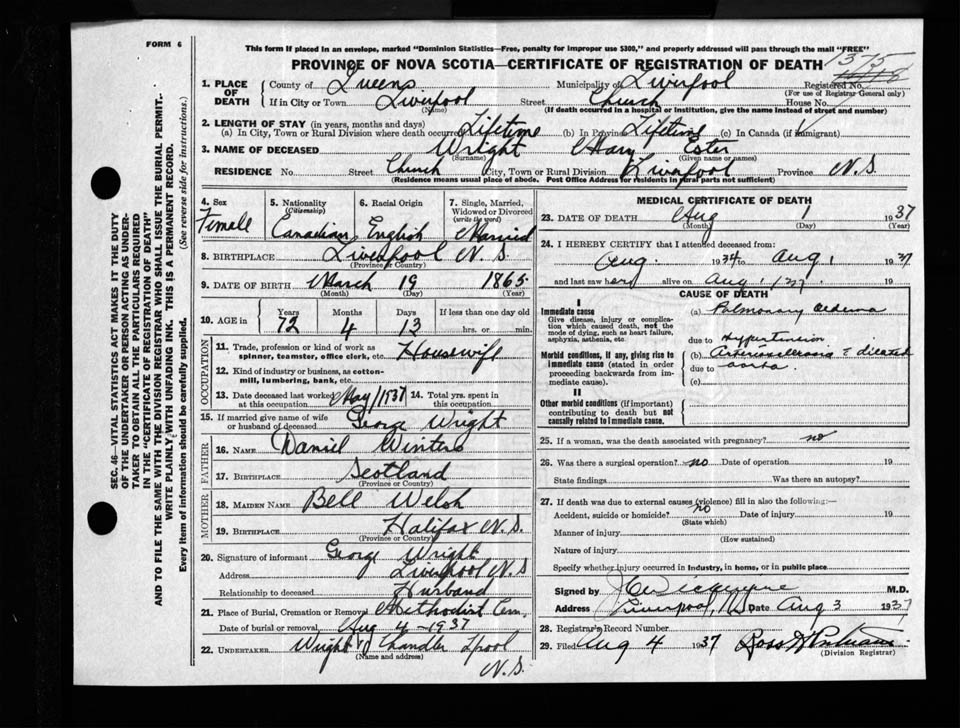 FORM 6
This form if placed in an envelope, marked "Dominion Statistics—Free, penalty for improper use $300," and properly addressed will pass through the mail "FREE"
PROVINCE OF NOVA SCOTIA—CERTIFICATE OF REGISTRATION OF DEATH
1375
1. PLACE OF DEATH County of Queens Municipality of Liverpool Registered No.
(For use of Registrar General only)
If in City or Town Liverpool Street Church House No.
(Name) (If death occurred in a hospital or institution, give the name instead of street and number)
2. LENGTH OF STAY (in years, months and days)
(a) In City, Town or Rural Division where death occurred Lifetime (b) In Province Lifetime (c) In Canada (if immigrant)
3. NAME OF DECEASED Wright Mary Ester
(Surname) (Given name or names)
RESIDENCE No. Street Church City, Town or Rural Division Liverpool Province N.S.
(Residence means usual place of abode. Post Office Address for residents in rural parts not sufficient)
4. Sex Femall
5. Nationality (Citizenship) Canadian
6. Racial Origin English
7. Single, Married, Widowed or Divorced (write the word) Married
8. BIRTHPLACE Liverpool N.S.
(Province or Country)
9. DATE OF BIRTH March 19 1865
(Month) (Day) (Year)
10. AGE in Years Months Days If less than one day old
72 4 13 hrs. or min.
OCCUPATION
11. Trade, profession or kind of work as spinner, teamster, office clerk, etc. Housewife
12. Kind of industry or business, as cotton-mill, lumbering, bank, etc.
13. Date deceased last worked at this occupation May/1937 14. Total yrs. spent in this occupation
15. If married give name of wife or husband of deceased George Wright
FATHER
16. NAME Daniel Winters
17. BIRTHPLACE Scotland
(Province or Country)
MOTHER
18. MAIDEN NAME Bell Welsh
19. BIRTHPLACE Halifax N.S.
(Province or Country)
20. Signature of informant George Wright
Address Liverpool N.S
Relationship to deceased Husband
21. Place of Burial, Cremation or Removal Methodist Cem.
Date of burial or removal Aug 4 - 1937
22. UNDERTAKER Wright & Chandler Lpool
(Name and address)
N.S.
MEDICAL CERTIFICATE OF DEATH
23. DATE OF DEATH Aug 1 1937
(Month) (Day) (Year)
24. I HEREBY CERTIFY that I attended deceased from:
Aug. 1934 to Aug 1 1937
and last saw her alive on Aug 1/37. 19
CAUSE OF DEATH
I
Immediate cause
Give disease, injury or complication which caused death, not the mode of dying, such as heart failure, asphyxia, asthenia, etc.
(a) Pulmonary oedema
due to Hypertension
Morbid conditions, if any, giving rise to immediate cause (stated in order proceeding backwards from immediate cause).
(b) Arteriosclerosis & dilated
due to aorta.
(c)
II
Other morbid conditions (if important) contributing to death but not causally related to immediate cause.
25. If a woman, was the death associated with pregnancy? no
26. Was there a surgical operation? no Date of operation 19
State findings Was there an autopsy?
27. If death was due to external causes (violence) fill in also the following:—
Accident, suicide or homicide? no Date of injury 19
(State which)
Manner of injury
(How sustained)
Nature of injury
Specify whether injury occurred in industry, in home, or in public place
Signed by M.D.
Address Liverpool, N.S. Date Aug 3 1937
28. Registrar's Record Number
29. Filed Aug 4 1937 Ross
(Division Registrar)
SEC. 46—VITAL STATISTICS ACT MAKES IT THE DUTY
OF THE UNDERTAKER OR PERSON ACTING AS UNDER-
TAKER TO OBTAIN ALL THE PARTICULARS REQUIRED
IN THE "CERTIFICATE OF REGISTRATION OF DEATH"
AND TO FILE THE SAME WITH THE DIVISION REGISTRAR WHO SHALL ISSUE THE BURIAL PERMIT.
WRITE PLAINLY WITH UNFADING INK. THIS IS A PERMANENT RECORD.
Every item of information should be carefully supplied. (See reverse side for instructions.)